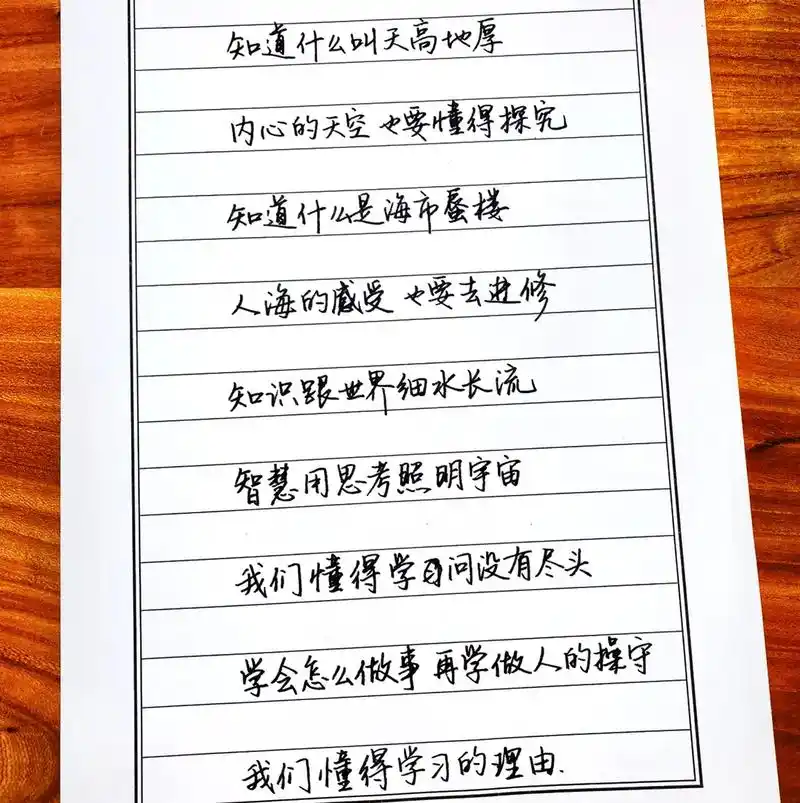 知道什么叫天高地厚
内心的天空也要懂得探究
知道什么是海市蜃楼
人海的感受也要去进修
知识跟世界细水长流
智慧用思考照明宇宙
我们懂得学问没有尽头
学会怎么做事再学做人的操守
我们懂得学习的理由.